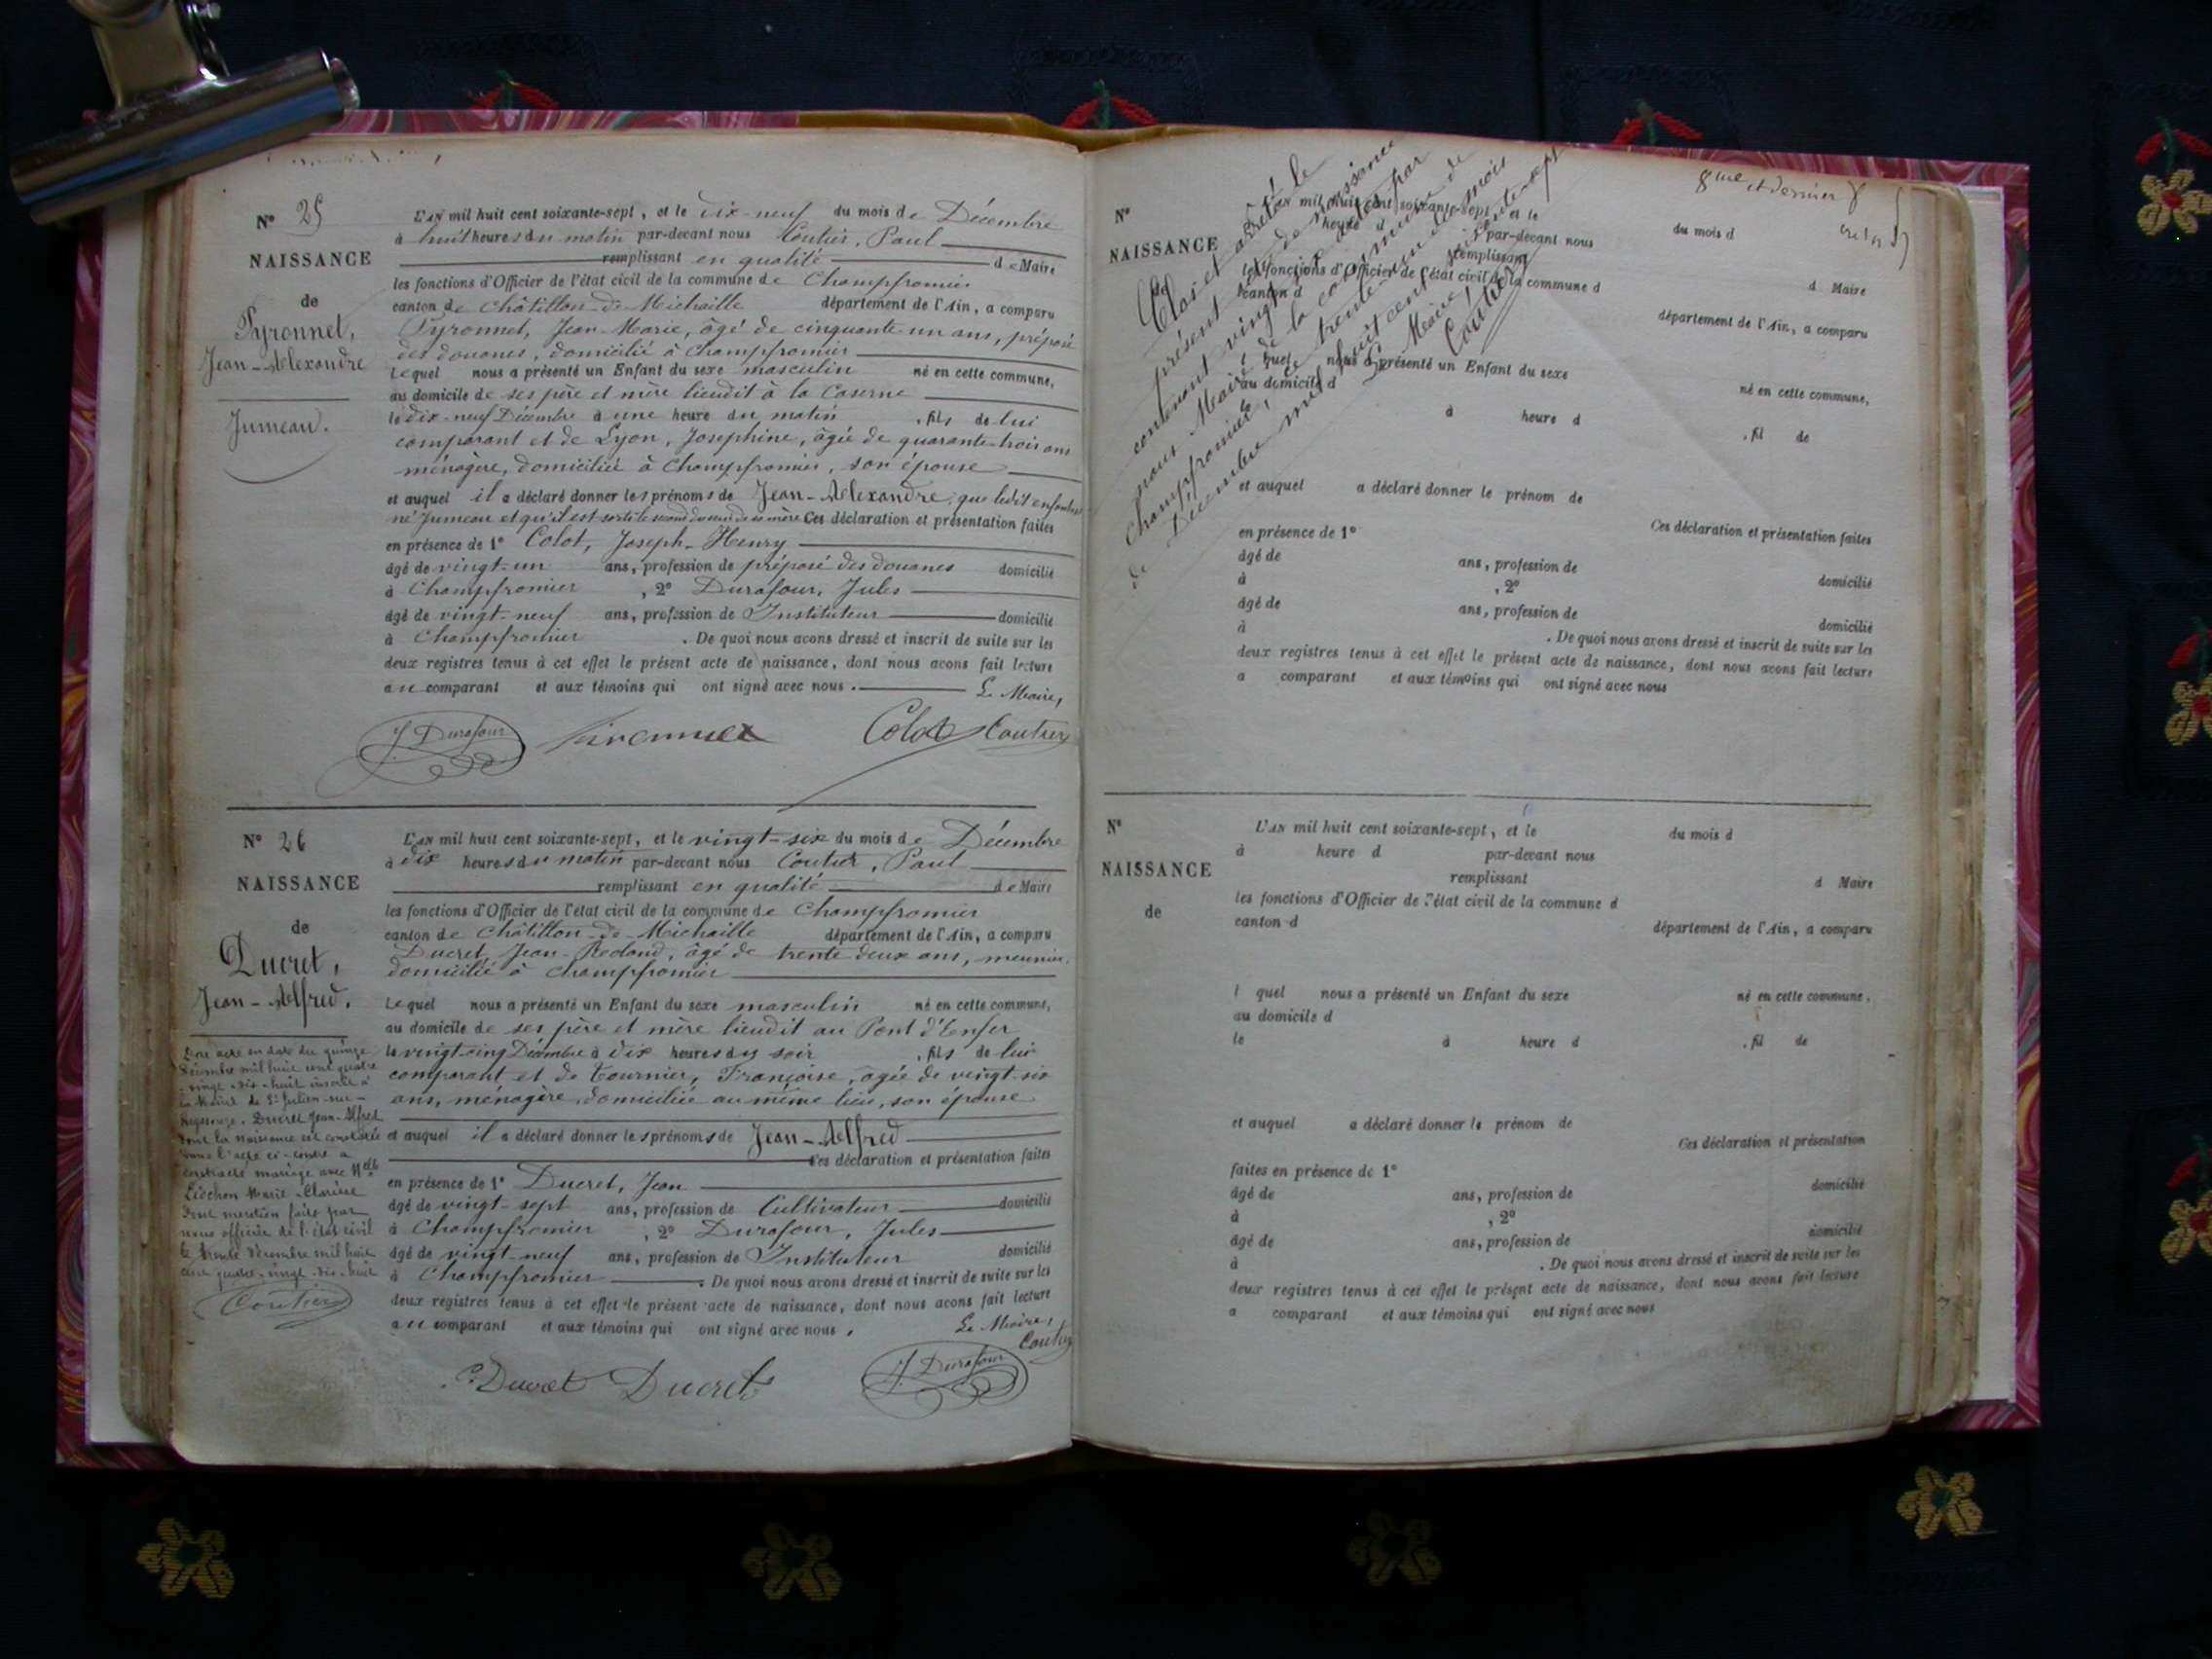 N° 25
NAISSANCE
de
Pyronnet,
Jean-Alexandre
Jumeau.
L'AN mil huit cent soixante-sept, et le dix-neuf du mois de Décembre
à huit heures du matin par-devant nous Coutier, Paul
remplissant en qualité de Maire
les fonctions d'Officier de l'état civil de la commune de Champfromier
canton de Châtillon-de-Michaille département de l'Ain, a comparu
Pyronnet, Jean-Marie, âgé de cinquante-un ans, préposé
des douanes, domicilié à Champfromier
Lequel nous a présenté un Enfant du sexe masculin né en cette commune,
au domicile de ses père et mère lieudit à la Caserne
le dix-neuf Décembre à une heure du matin, fils de lui
comparant et de Lyon, Josephine, âgée de quarante-trois ans
ménagère, domiciliée à Champfromier, son épouse
et auquel il a déclaré donner les prénoms de Jean-Alexandre, que ledit enfant est
né Jumeau et qu'il est sorti le second du sein de sa mère Ces déclaration et présentation faites
en présence de 1° Colot, Joseph-Henry
âgé de vingt-un ans, profession de préposé des douanes domicilié
à Champfromier, 2° Durafour, Jules
âgé de vingt-neuf ans, profession de Instituteur domicilié
à Champfromier. De quoi nous avons dressé et inscrit de suite sur les
deux registres tenus à cet effet le présent acte de naissance, dont nous avons fait lecture
au comparant et aux témoins qui ont signé avec nous. Le Maire,
J. Durafour Colot Coutier
N° 26
NAISSANCE
de
Ducret,
Jean-Alfred.
L'AN mil huit cent soixante-sept, et le vingt-six du mois de Décembre
à dix heures du matin par-devant nous Coutier, Paul
remplissant en qualité de Maire
les fonctions d'Officier de l'état civil de la commune de Champfromier
canton de Châtillon-de-Michaille département de l'Ain, a comparu
Ducret, Jean-Roland, âgé de trente deux ans, meunier,
domicilié à Champfromier
Lequel nous a présenté un Enfant du sexe masculin né en cette commune,
au domicile de ses père et mère lieudit au Pont d'Enfer
le vingt-cinq Décembre à dix heures du soir, fils de lui
comparant et de Tournier, Françoise, âgée de vingt-six
ans, ménagère, domiciliée au même lieu, son épouse
et auquel il a déclaré donner les prénoms de Jean-Alfred
Ces déclaration et présentation faites
en présence de 1° Ducret, Jean
âgé de vingt-sept ans, profession de Cultivateur domicilié
à Champfromier, 2° Durafour, Jules
âgé de vingt-neuf ans, profession de Instituteur domicilié
à Champfromier. De quoi nous avons dressé et inscrit de suite sur les
deux registres tenus à cet effet le présent acte de naissance, dont nous avons fait lecture
au comparant et aux témoins qui ont signé avec nous. Le Maire,
Coutier
Ducret Ducret J. Durafour
acte en date du quinze
décembre mil huit cent quatre
-vingt-dix-huit inscrit à
la Mairie de St Julien-sur-
Reyssouze, Ducret Jean-Alfred
dont la naissance est constatée
dans l'acte ci-contre a
contracté mariage avec Melle
Marie-Clarisse
Dont mention faite par
nous officier de l'état civil
le trente décembre mil huit
cent quatre-vingt-dix-huit
Coutier
8me et dernier f
Clos et arrêté le
présent de naissance
contenant vingt par
nous Maire de la commune de
Champfromier, ce trente-un du mois
de Décembre mil huit cent soixante-sept
Le Maire,
Coutier
N°
NAISSANCE
L'AN mil huit cent soixante-sept, et le du mois d
heure d par-devant nous
remplissant d Maire
les fonctions d'Officier de l'état civil de la commune d
canton d département de l'Ain, a comparu
quel nous a présenté un Enfant du sexe né en cette commune,
au domicile d
le à heure d , fil de
et auquel a déclaré donner le prénom de
Ces déclaration et présentation faites
en présence de 1°
âgé de ans, profession de domicilié
à , 2°
âgé de ans, profession de domicilié
à . De quoi nous avons dressé et inscrit de suite sur les
deux registres tenus à cet effet le présent acte de naissance, dont nous avons fait lecture
a comparant et aux témoins qui ont signé avec nous
N°
NAISSANCE
de
L'AN mil huit cent soixante-sept, et le du mois d
à heure d par-devant nous
remplissant d Maire
les fonctions d'Officier de l'état civil de la commune d
canton d département de l'Ain, a comparu
l quel nous a présenté un Enfant du sexe né en cette commune,
au domicile d
le à heure d , fil de
et auquel a déclaré donner le prénom de
Ces déclaration et présentation
faites en présence de 1°
âgé de ans, profession de domicilié
à , 2°
âgé de ans, profession de domicilié
à . De quoi nous avons dressé et inscrit de suite sur les
deux registres tenus à cet effet le présent acte de naissance, dont nous avons fait lecture
a comparant et aux témoins qui ont signé avec nous